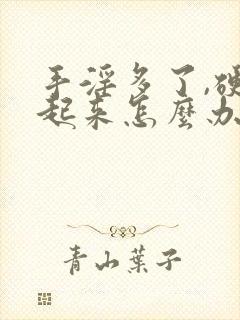 手淫多了,硬
起来怎麼办
青山葉子